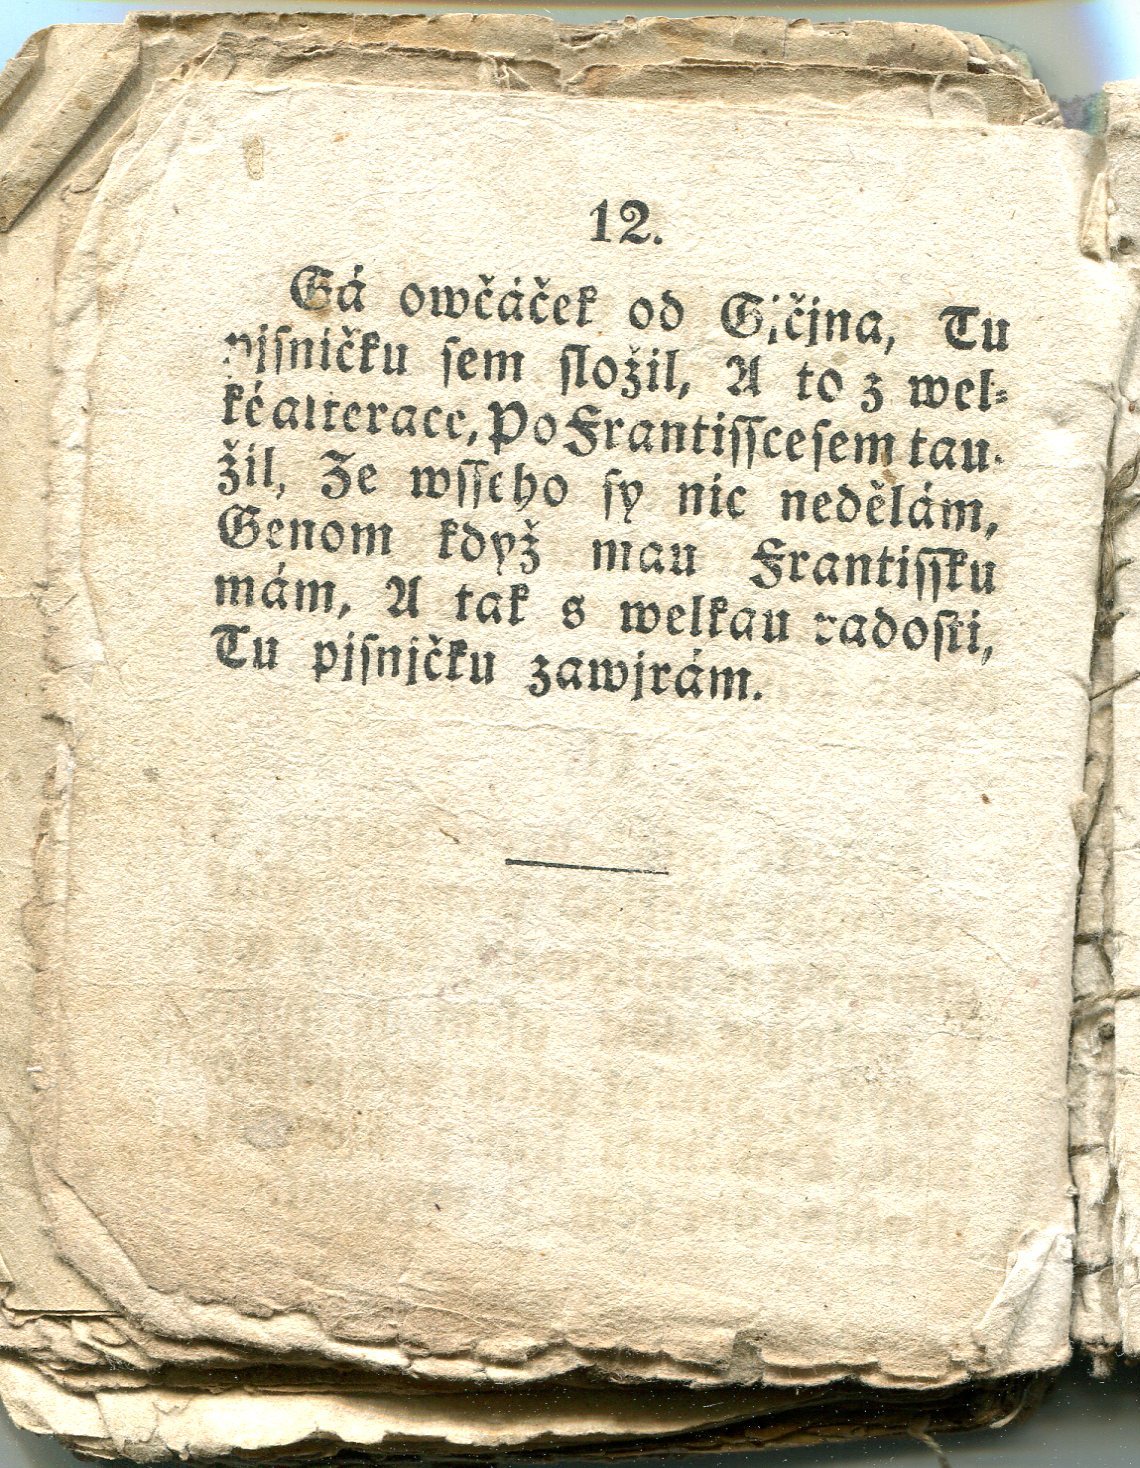 12.
Gá owčáček od Gičjna, Tu
pjſničku ſem ſložil, A to z wel⸗
ké alterace, Po Frantiſſce ſem tau⸗
žil, Že wſſeho ſy nic nedělám,
Genom když mau Frantiſſku
mám, A tak s welkau radoſti,
Tu pjſnjčku zawjrám.